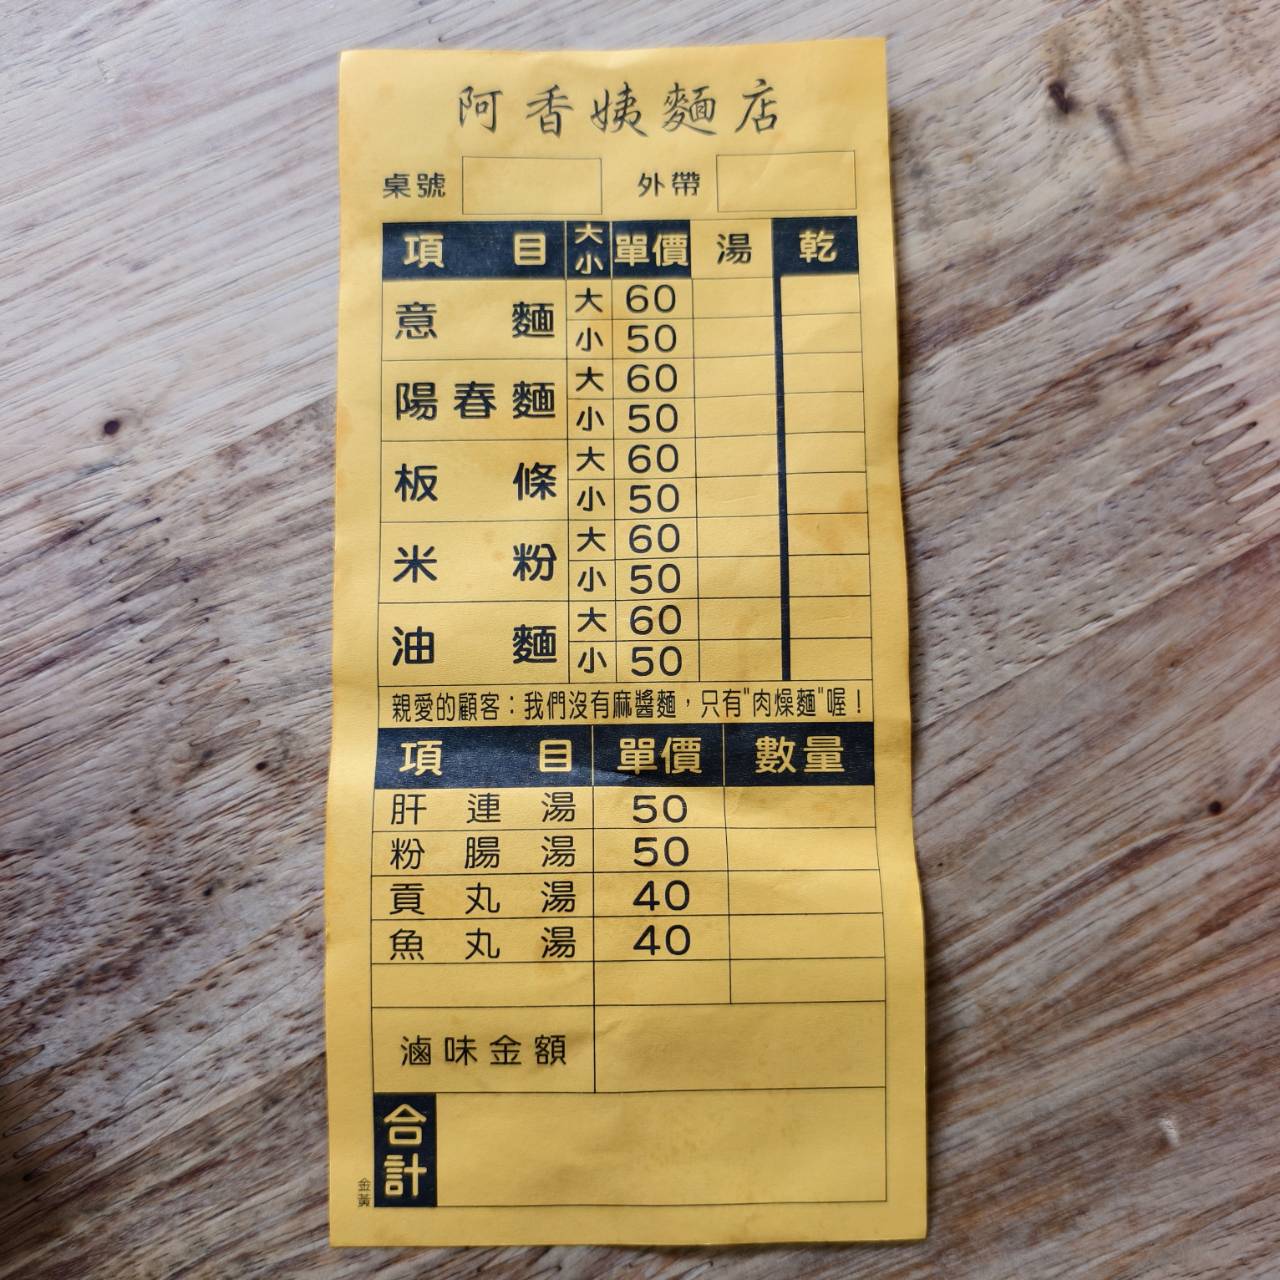 阿香姨麵店
桌號 外帶
項目 大小 單價 湯 乾
意麵 大 60
小 50
陽春麵 大 60
小 50
板條 大 60
小 50
米粉 大 60
小 50
油麵 大 60
小 50
親愛的顧客：我們沒有麻醬麵，只有"肉燥麵"喔！
項目 單價 數量
肝連湯 50
粉腸湯 50
貢丸湯 40
魚丸湯 40
滷味金額
合計
金黃